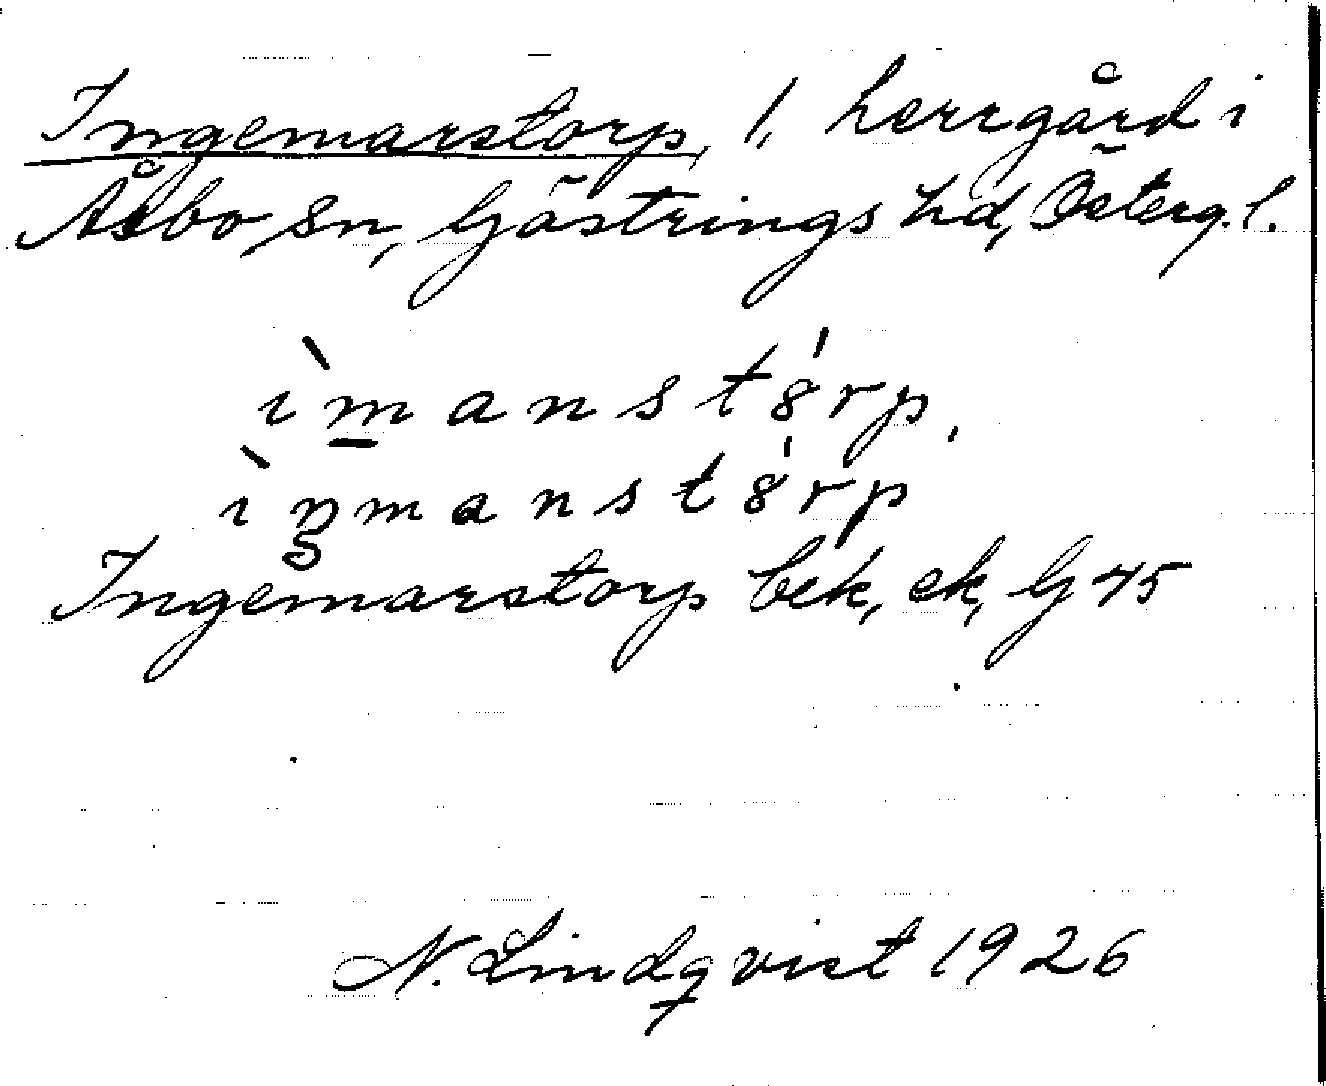 Ingemarstorp, 1, herrgård i
Åsbo sn, Göstrings hd, Österg. l.
ìmanstó̵rp,
ìŋmanstó̵rp
Ingemarstorp bek, ek, G 45
N. Lindqvist 1926